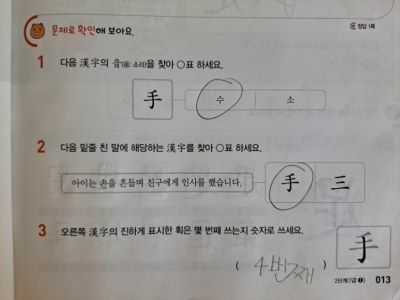 문제로 확인해 보아요.
정답 1쪽
1 다음 漢字의 음(音: 소리)을 찾아 ○표 하세요.
手 수 소
2 다음 밑줄 친 말에 해당하는 漢字를 찾아 ○표 하세요.
아이는 손을 흔들며 친구에게 인사를 했습니다. 手 三
3 오른쪽 漢字의 진하게 표시한 획은 몇 번째 쓰는지 숫자로 쓰세요.
手
( 4번째 )
2단계(7급 1) 013